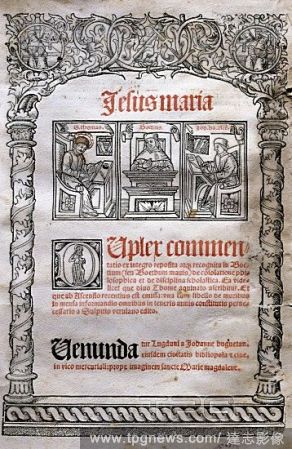 Jesus maria
S. thomas. Boetius. Joq. ba. Asc.
Duplex commen-
tatio ex integro reposita atq; recognita in Boe-
tium (seu Boethum mauis) de cōsolatione phi-
losophica et de disciplina scholastica. Ea vide-
licet que diuo Thome aquinato ascribitur. Et
que ab Ascensio recentius est emissa: vna cum libello de moribus
in mensa informandis omnibus in teneris annis constitutis perne-
cessario a Sulpitio verulano edito.
Venunda
tur Lugduni a Johanne huguetan
eiusdem ciuitatis bibliopola & ciue,
in vico mercuriali: prope imaginem sancte Marie magdalene.
www.tpgnews.com / 達志影像